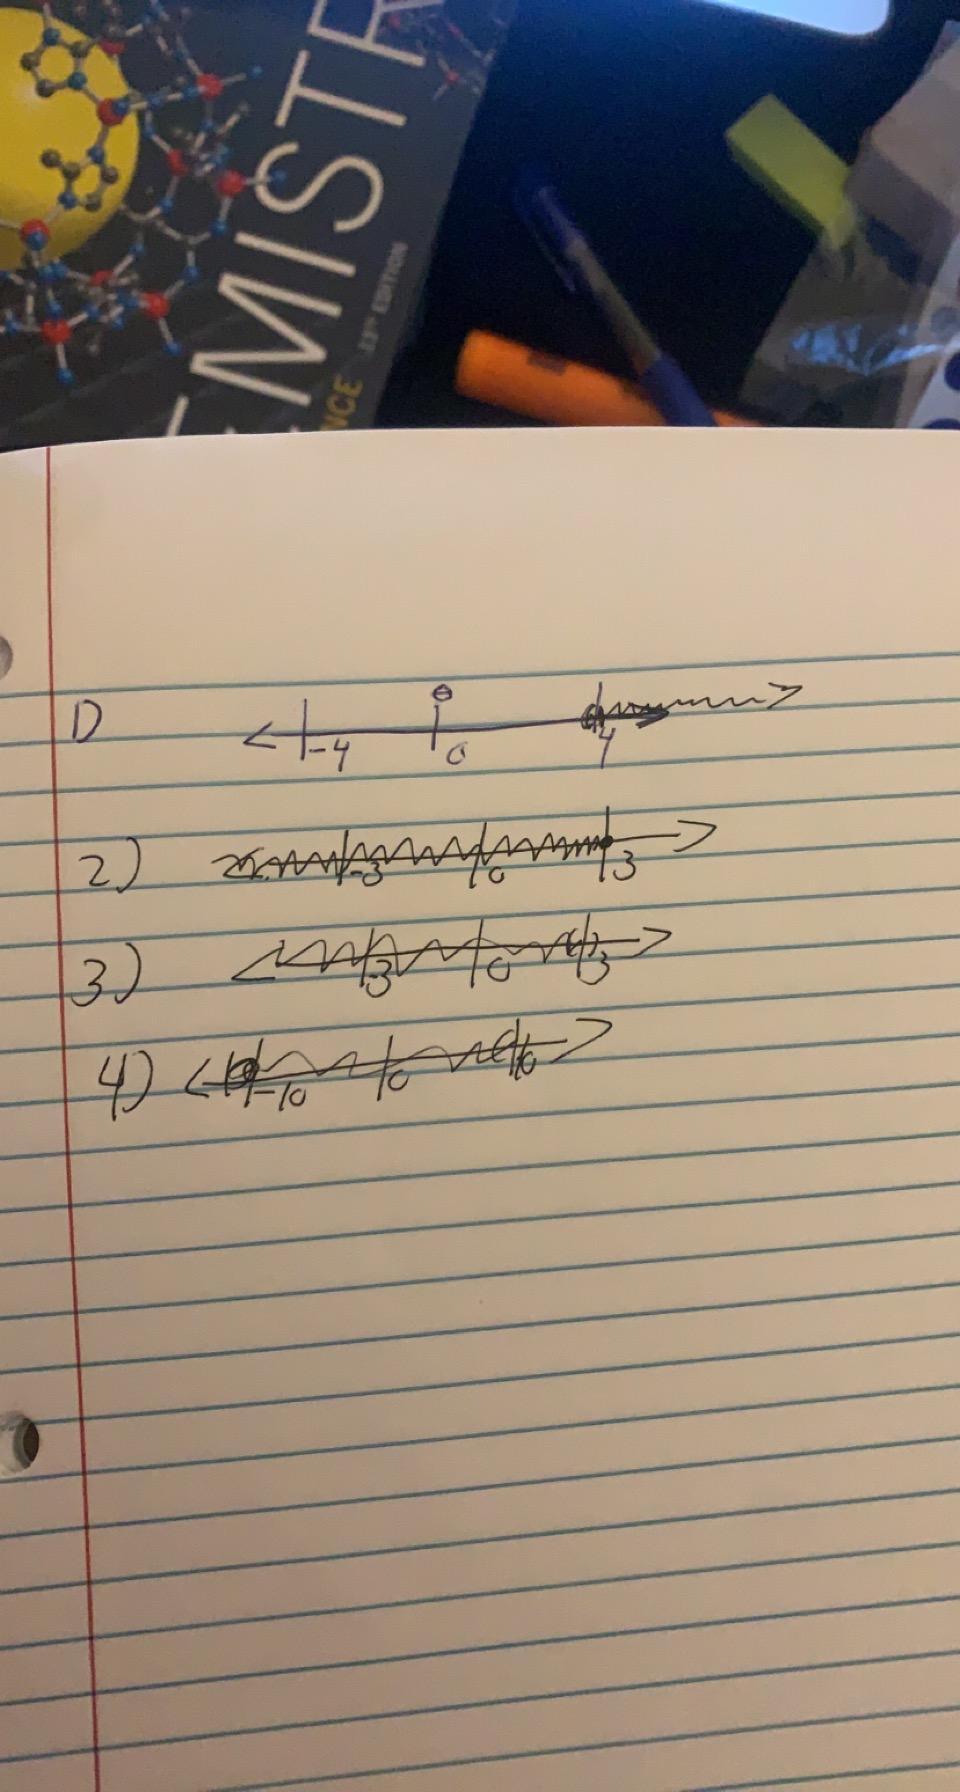 EMISTR
NCE 13TH EDITION
1)
-4 0 4
2)
-3 0 3
3)
-3 0 3
4)
-10 0 10